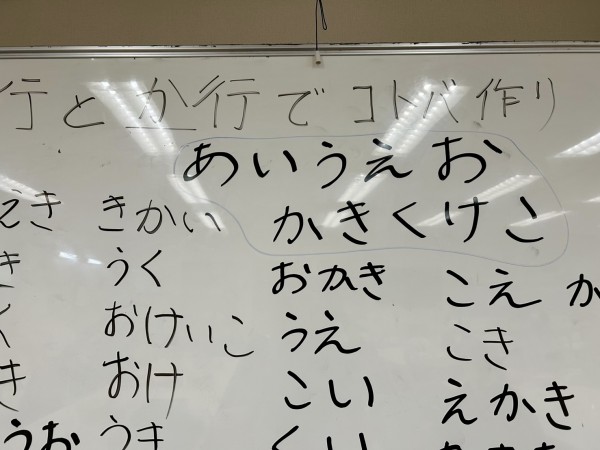 行とか行でコトバ作り
あいうえお
かきくけこ
えき きかい おかき こえ か
き うく うえ こき
く おけいこ こい えかき
き おけ くい
うお うき